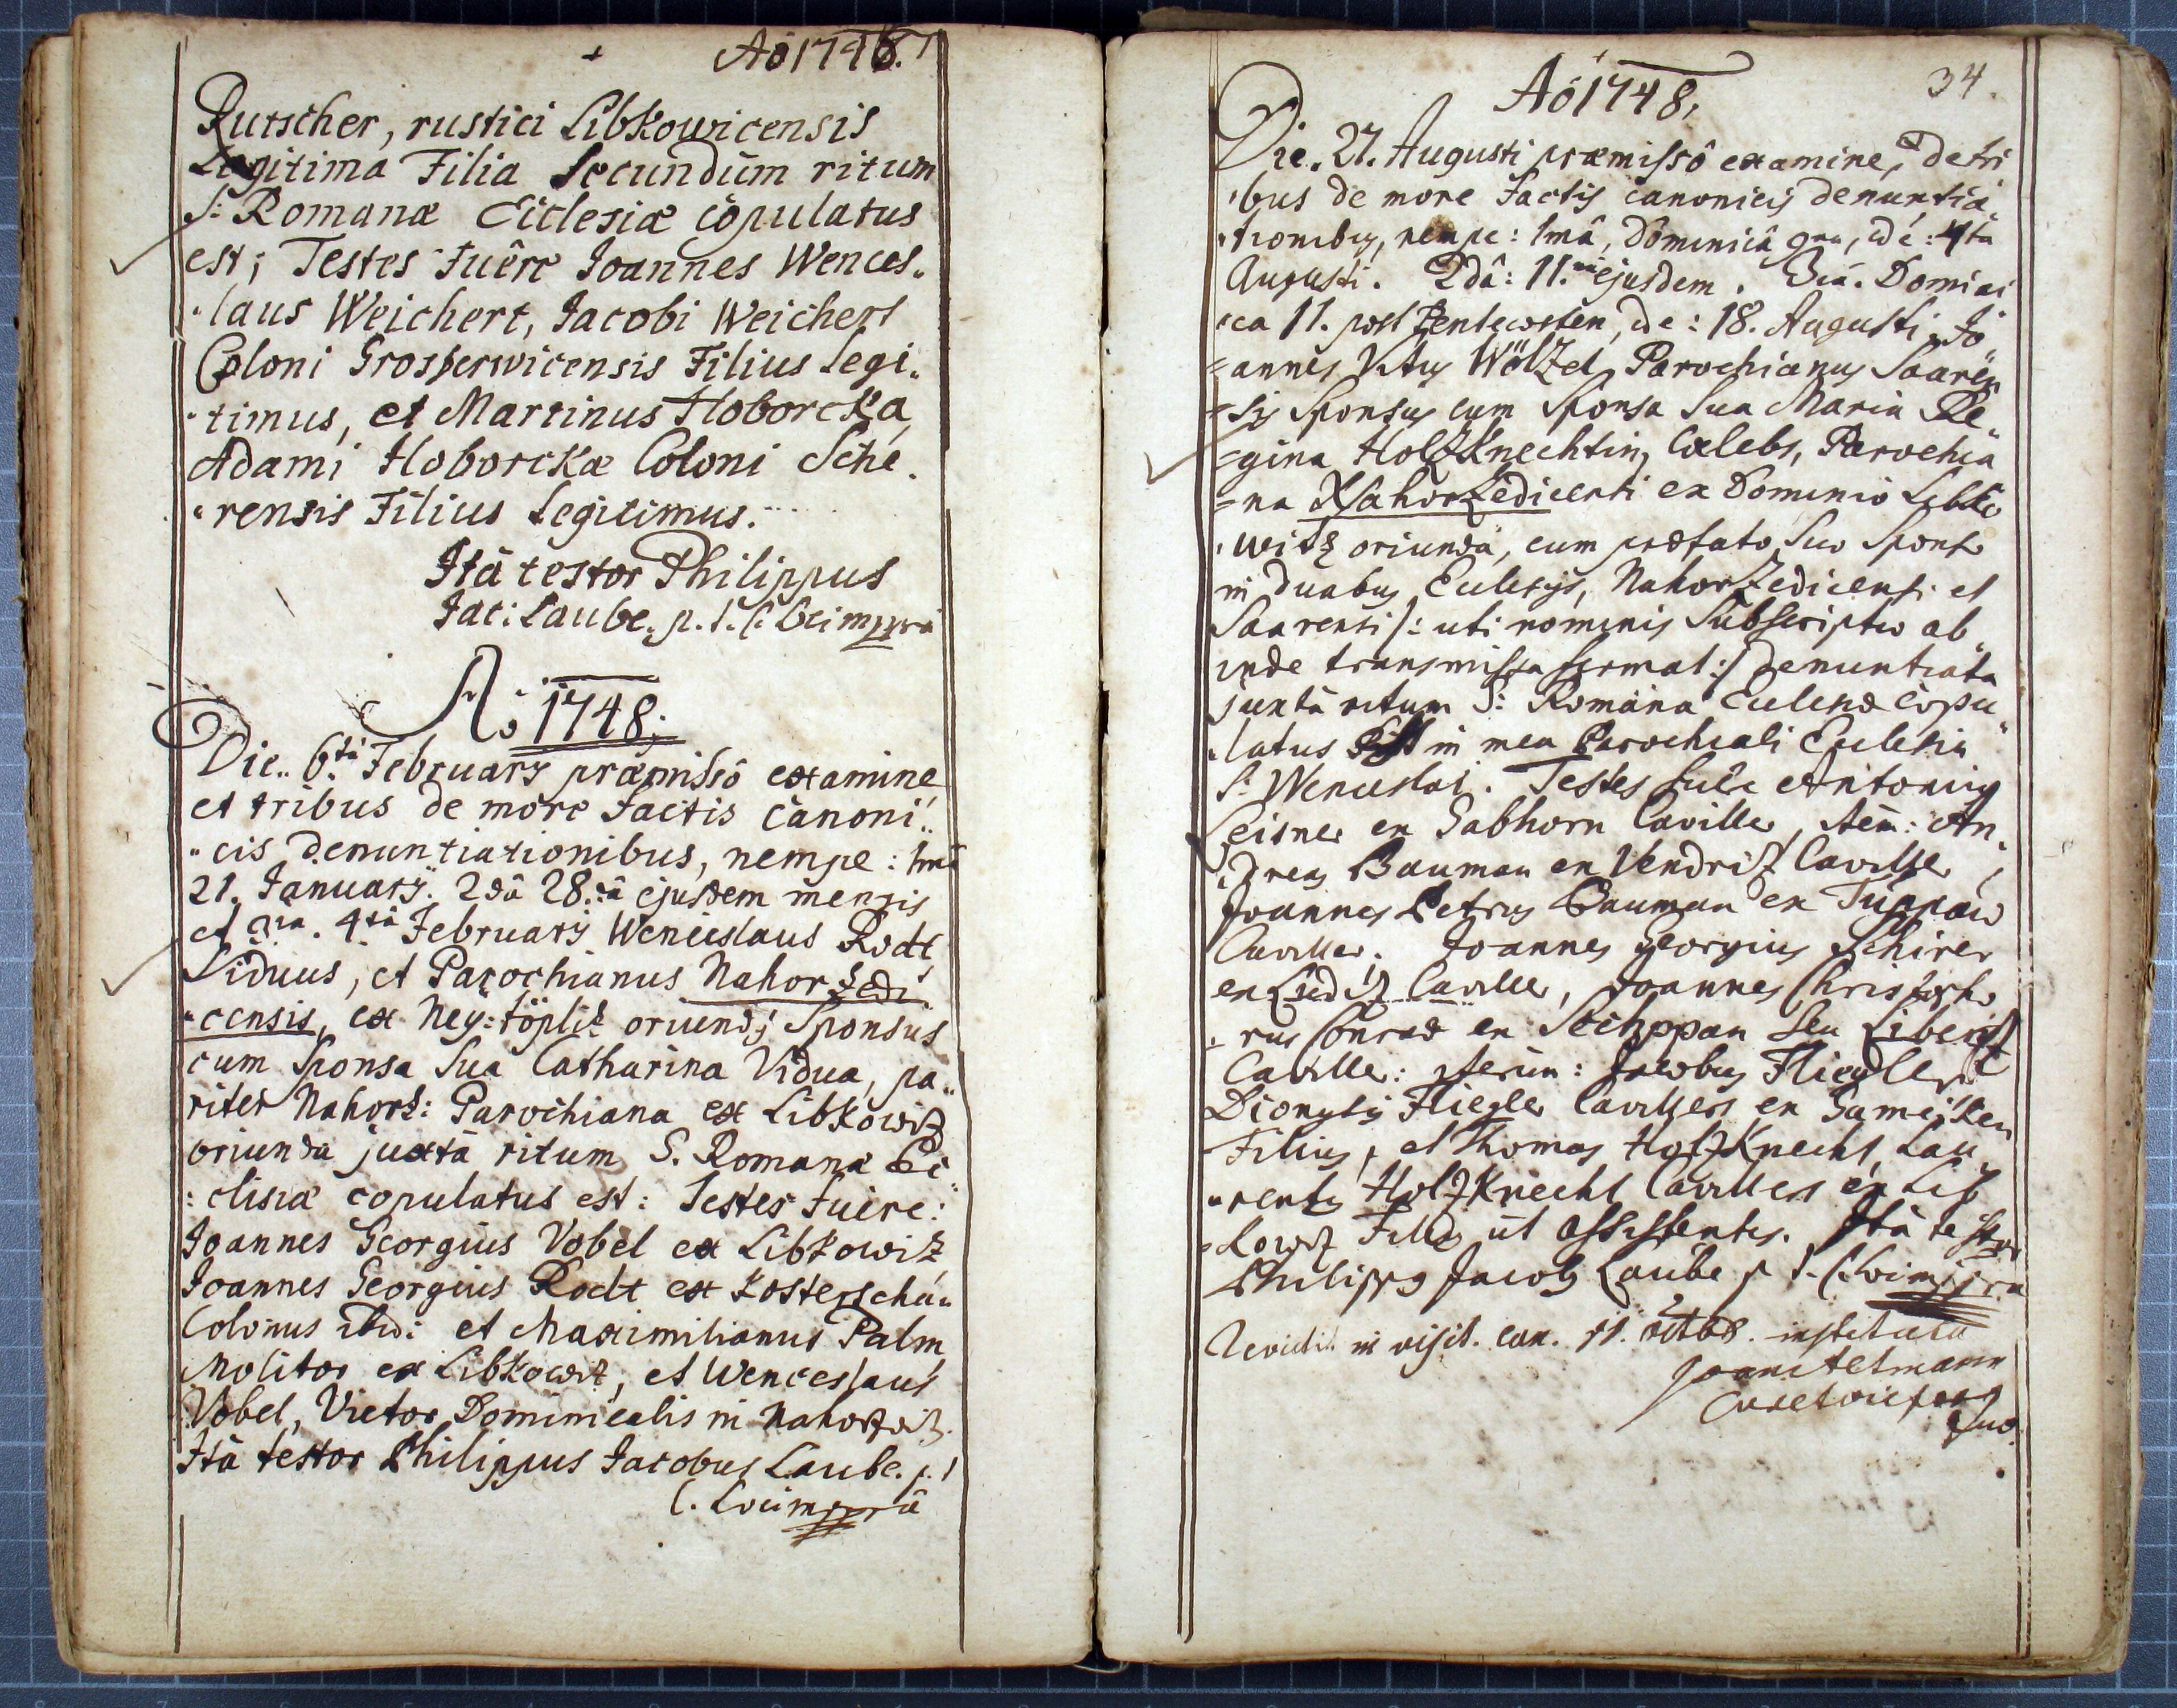 Aõ 1746.
Rutscher, rustici Libkowicensis
Legitima Filia Secundùm ritum
S: Romanæ Ecclesiæ copulatus
est; Testes fuêre Joannes Wences„
„laus Weichert, Jacobi Weichert
Coloni Grosperwicensis Filius Legi„
„timus, et Martinus Hoborcka,
Adami Hoborckæ Coloni Sche„
„rensis Filius Legitimus.
Ità testor Philippus
Jac: Laube. p. t.
Aõ 1748.
Die 6ti February præmissô examine
et tribus de more factis canoni„
„cis denuntiationibus, nempe: 1mâ
21. January. 2dâ 28.vâ ejusdem mensis
et 3ia. 4tâ February Wenceslaus Rodt
Viduus, et Parochianus Nahorzedi„
„censis, ex Ney=töplitz oriund; Sponsus
cum Sponsa Sua Catharina Vidua, pa„
riter Nahorz: Parochiana ex Libkowitz
oriunda juxtà ritum S. Romanæ Ec„
:clesiæ copulatus est: Testes fuêre:
Joannes Georgius Vobel ex Libkowitz
Joannes Georgius Rodt ex Kosterschan
Colonus ibid: et Maximilianus Palm
Molitor ex Libkowitz, et Wenceslaus
Vobel, Vietor Dominicalis in
Ità testor Philippus Jacobus Laube. p. t
34.
Aõ 1748.
Die. 27. Augusti præmissô examine, et tri
„bus de more factis canonicis denuntia„
„tionibus, nempe: 1mâ, Dominicâ 9na, id é: 4ta
Augusti. 2dâ: 11. ejusdem. 3iâ. Domini
„ca 11. post Pentecosten, id e: 18. Augusti Jo„
=annes Vitus Wölzel, Parochianus Saarën
=sis Sponsus cum Sponsa Sua Maria Re„
=gina Holzknechtin, Cælebs, Parochia
=na Nahorzedicensi ex Dominio Libko
„witz oriunda, cum præfato Suo Sponso
in duabus Ecclesijs, Nahorzedicensi et
Saarensi /: uti nominis Subscriptio ab„
inde transmissa firmat :/ denuntiata
juxtà ritum S: Romanæ Ecclesiæ copu„
„latus est in mea Parochiali Ecclesia
S. Wenceslai. Testes fuêre Antonius
Leisner ex Gabhorn Caviller, Item: An„
„dreas Bauman ex Vendritz Caviller,
Joannes Petrus Bauman ex Tuppau
Caviller. Joannes Georgius Schirer
ex Luditz Caviller, Joannes Christoph„
„rus Conrad ex seu
Caviller: iterùm: Jacobus Fliegler
Dionysij Fliegler Cavillers ex
Filius, et Thomas Holzknecht, Lau„
„rentij Holzknecht Cavillers ex Lib„
„kowitz Filius ut Assistentes. Ità testor
Philippus Jacob Laube p. t.
in visit. can. 11. 8tbr. instituta